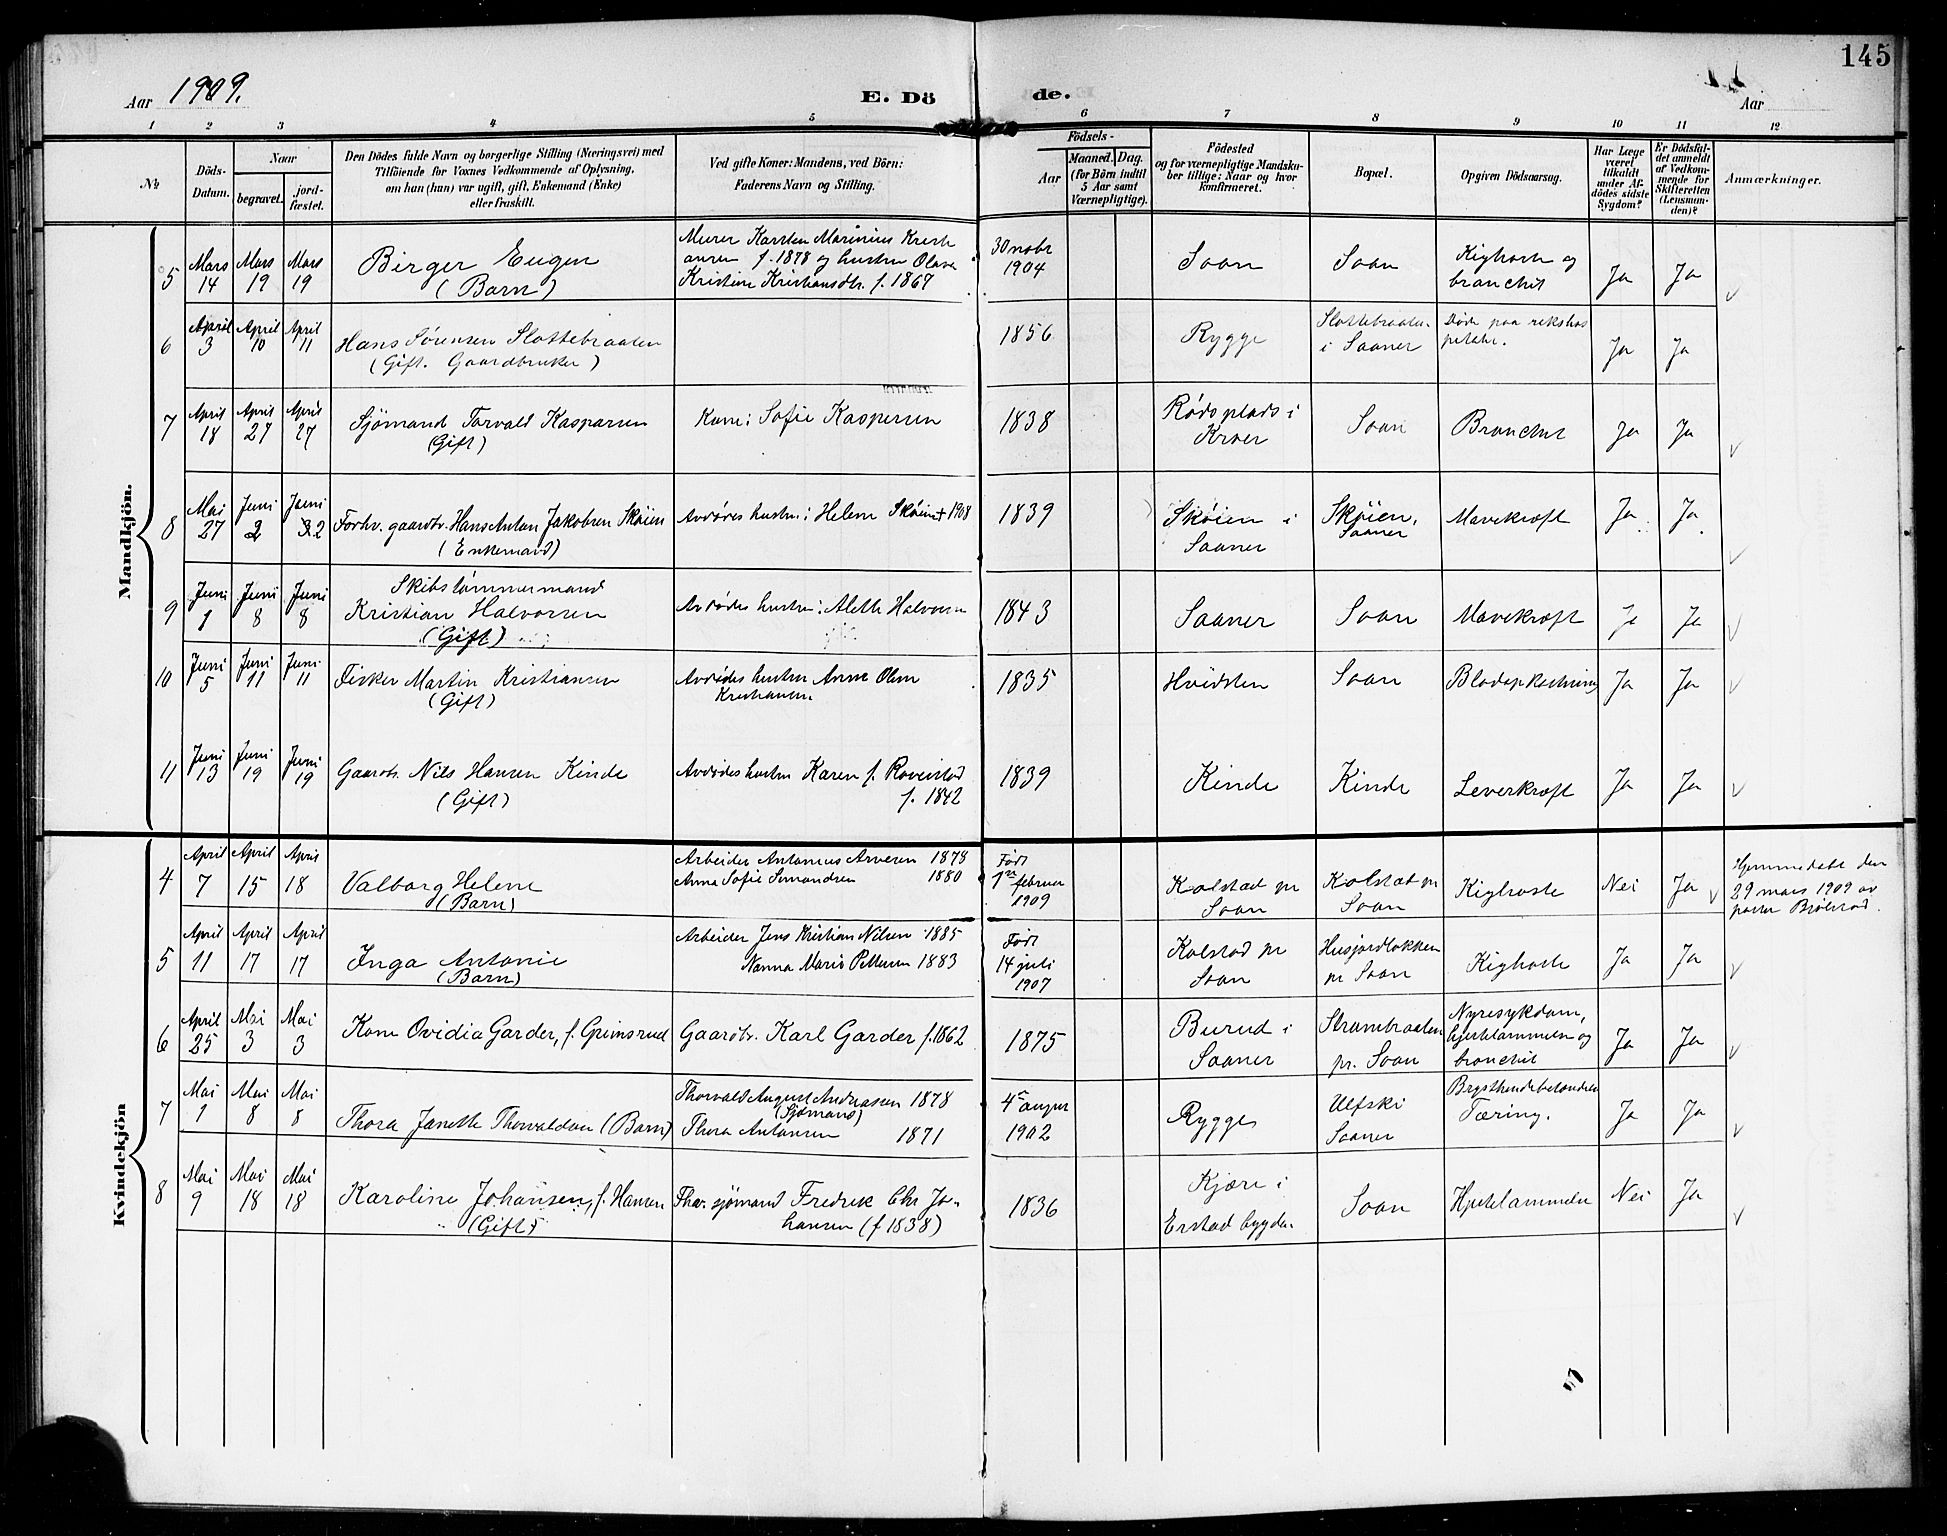 145
Aar 1909.
E. Dö
de.
Aar
1 2 3 4 5 6 7 8 9 10 11 12
No
Döds-
Datum.
Naar
begravet.
jord-
fæstet.
Den Dödes fulde Navn og borgerlige Stilling (Næringsvei) med
Tilföiende for Voxnes Vedkommende af Oplysning,
om han (hun) var ugift, gift, Enkemand (Enke)
eller fraskilt.
Ved gifte Koner: Mandens, ved Börn:
Faderens Navn og Stilling.
Födsels-
Aar
Maaned. Dag.
(for Börn indtil
5 Aar samt
Værnepligtige).
Födested
og for værnepligtige Mandska-
ber tillige: Naar og hvor
Konfirmeret.
Bopæl.
Opgiven Dödsaarsag.
Har Læge
været
tilkaldt
under Af-
dödes sidste
Sygdom?
Er Dödsfal-
det anmeldt
af Vedkom-
mende for
Skifteretten
(Lensman-
den)?
Anmærkninger.
Mandkjön.
5
Mars
14
Mars
19
Mars
19
Birger Eugen
(Barn)
Murer Karsten Marinius Kristi
ansen f. 1878 og hustru Olava
Kristine Kristiansdtr. f. 1867
30 novbr
1904
Soon
Soon
Kighoste og
bronchit
Ja
Ja
6
April
3
April
10
April
11
Hans Sørensen Slottebraaten
(Gift. Gaardbruker)
1856
Rygge
Slottebraaten
i Saaner
Døde paa rikshos
pitalet.
Ja
Ja
7
April
18
April
27
April
27
Sjömand Torvald Kaspersen
(Gift)
Kone: Sofie Kaspersen
1838
Rødsplads i
Kroer
Soon
Bronchit
Ja
Ja
8
Mai
27
Juni
2
Juni
2
Forhv. gaardbr. Hans Anton Jakobsen Skøien
(Enkemand)
Avdødes hustru: Helene Skøien + 1908
1839
Skøien i
Saaner
Skøien,
Saaner
Mavekræft
Ja
Ja
9
Juni
1
Juni
8
Juni
8
Skibstømmermand
Kristian Halvorsen
(Gift)
Avdødes hustru: Alette Halvorsen
1843
Saaner
Soon
Mavekræft
Ja
Ja
10
Juni
5
Juni
11
Juni
11
Fisker Martin Kristiansen
(Gift)
Avdødes hustru Anne Oline
Kristiansen
1835
Hvidsten
Soon
Blodopkastning
Ja
Ja
11
Juni
13
Juni
19
Juni
19
Gaardbr. Nils Hansen Kinde
(Gift)
Avdødes hustru Karen f. Roverstad
f. 1842
1839
Kinde
Kinde
Leverkræft
Ja
Ja
Kvindekjön
4
April
7
April
15
April
18
Valborg Helene
(Barn)
Arbeider Antonius Arnesen 1878
Anna Sofie Simondsen 1880
Født
1ste februar
1909
Kolstad pr
Soon
Kolstad pr
Soon
Kighoste
Nei
Ja
Hjemmedøbt den
29 mars 1909 av
pastor
5
April
11
April
17
April
17
Inga Antonie
(Barn)
Arbeider Jens Kristian Nilsen 1885
Nanna Marie Pettersen 1883
Født
14 juli
1907
Kolstad pr
Soon
Husjordløkken
pr Soon
Kighoste
Ja
Ja
6
April
25
Mai
3
Mai
3
Kone Ovidia Garder, f. Grimsrud
Gaardbr. Karl Garder f. 1862
1875
Burud i
Saaner
Strømbraaten
pr. Soon
Nyresykdom,
hjertelammelse og
bronchit
Ja
Ja
7
Mai
1
Mai
8
Mai
8
Thora Janette Thorvaldsen (Barn)
Thorvald August Andreasen 1878
(Sjømand)
Thora Antonsen 1871
4de august
1902
Rygge
Ulfski
Saaner
Brysthindebetændelse
Tæring.
Ja
Ja
8
Mai
9
Mai
18
Mai
18
Karoline Johansen, f. Hansen
(Gift)
Fhv. sjømand Fredrik Chr Jo-
hansen (f 1838)
1836
Kjære i
Soon
Hjertelammelse
Nei
Ja